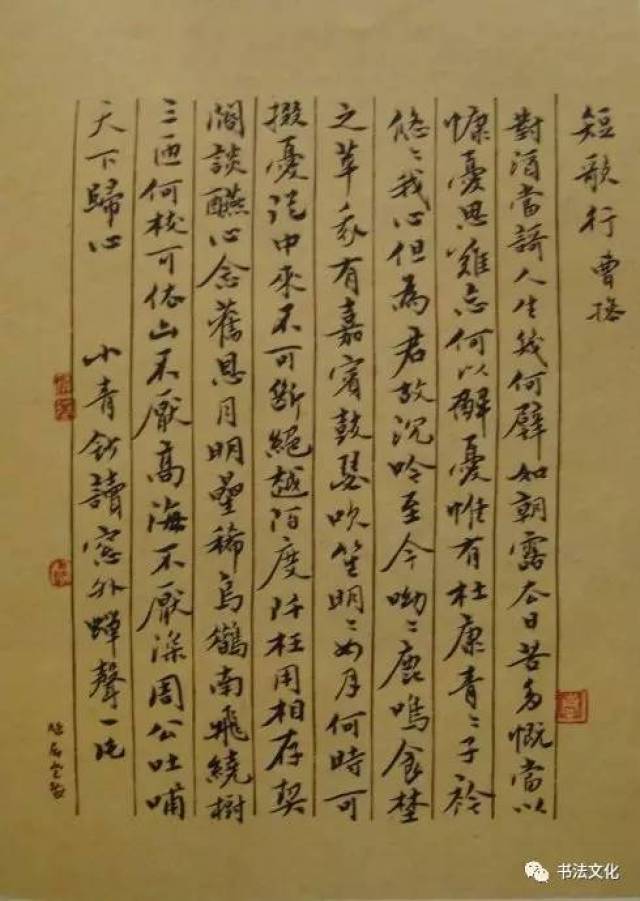 短歌行 曹操
對酒當謌人生幾何譬如朝露去日苦多慨當以
慷憂思難忘何以解憂惟有杜康青〻子衿
悠〻我心但為君故沉吟至今呦〻鹿鳴食埜
之苹我有嘉賓鼓瑟吹笙明〻如月何時可
掇憂從中來不可斷絕越陌度阡枉用相存契
闊談醼心念舊恩月明星稀烏鵲南飛繞樹
三匝何枝可依山不厭高海不厭深周公吐哺
天下歸心 小青鈔讀窗外蟬聲一片
书法文化